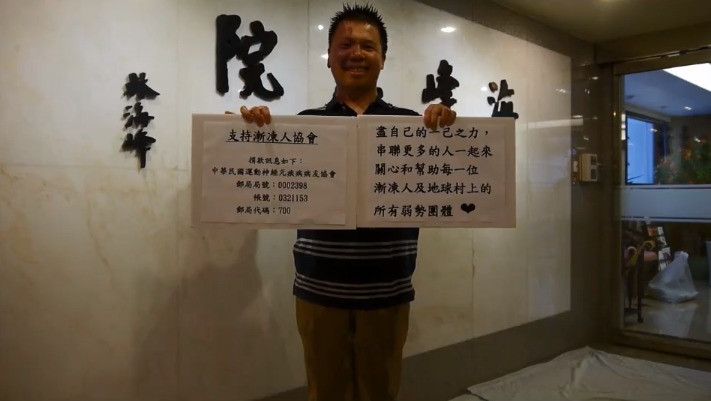 海峰院
林海峰
支持漸凍人協會
捐款訊息如下：
中華民國運動神經元疾病病友協會
郵局局號：0002398
帳號：0321153
郵局代碼：700
盡自己的一己之力，
串聯更多的人一起來
關心和幫助每一位
漸凍人及地球村上的
所有弱勢團體 ❤